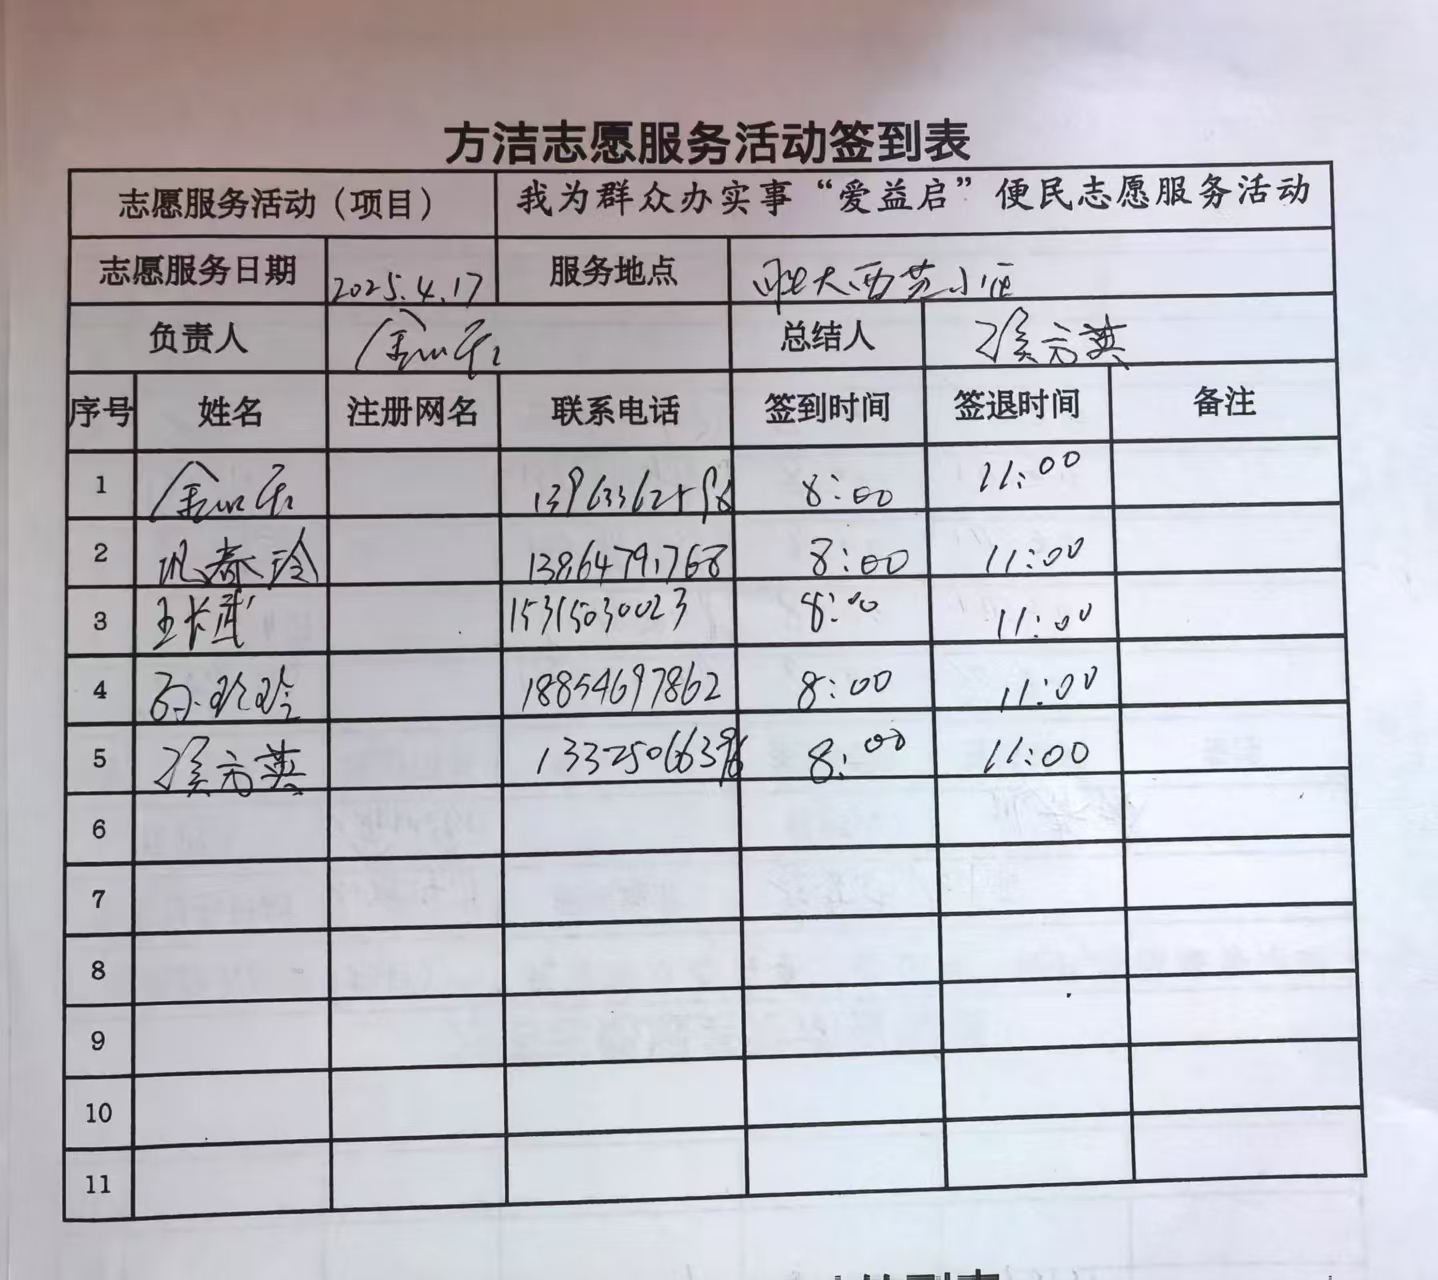 方洁志愿服务活动签到表
志愿服务活动（项目） 我为群众办实事“爱益启”便民志愿服务活动
志愿服务日期 2025.4.17 服务地点 胜大西苑小区
负责人 总结人 元英
序号 姓名 注册网名 联系电话 签到时间 签退时间 备注
1 8:00 11:00
2 春玲 13864791768 8:00 11:00
3 王长武 15315030023 8:00 11:00
4 18854697862 8:00 11:00
5 元英 13325066396 8:00 11:00
6
7
8
9
10
11